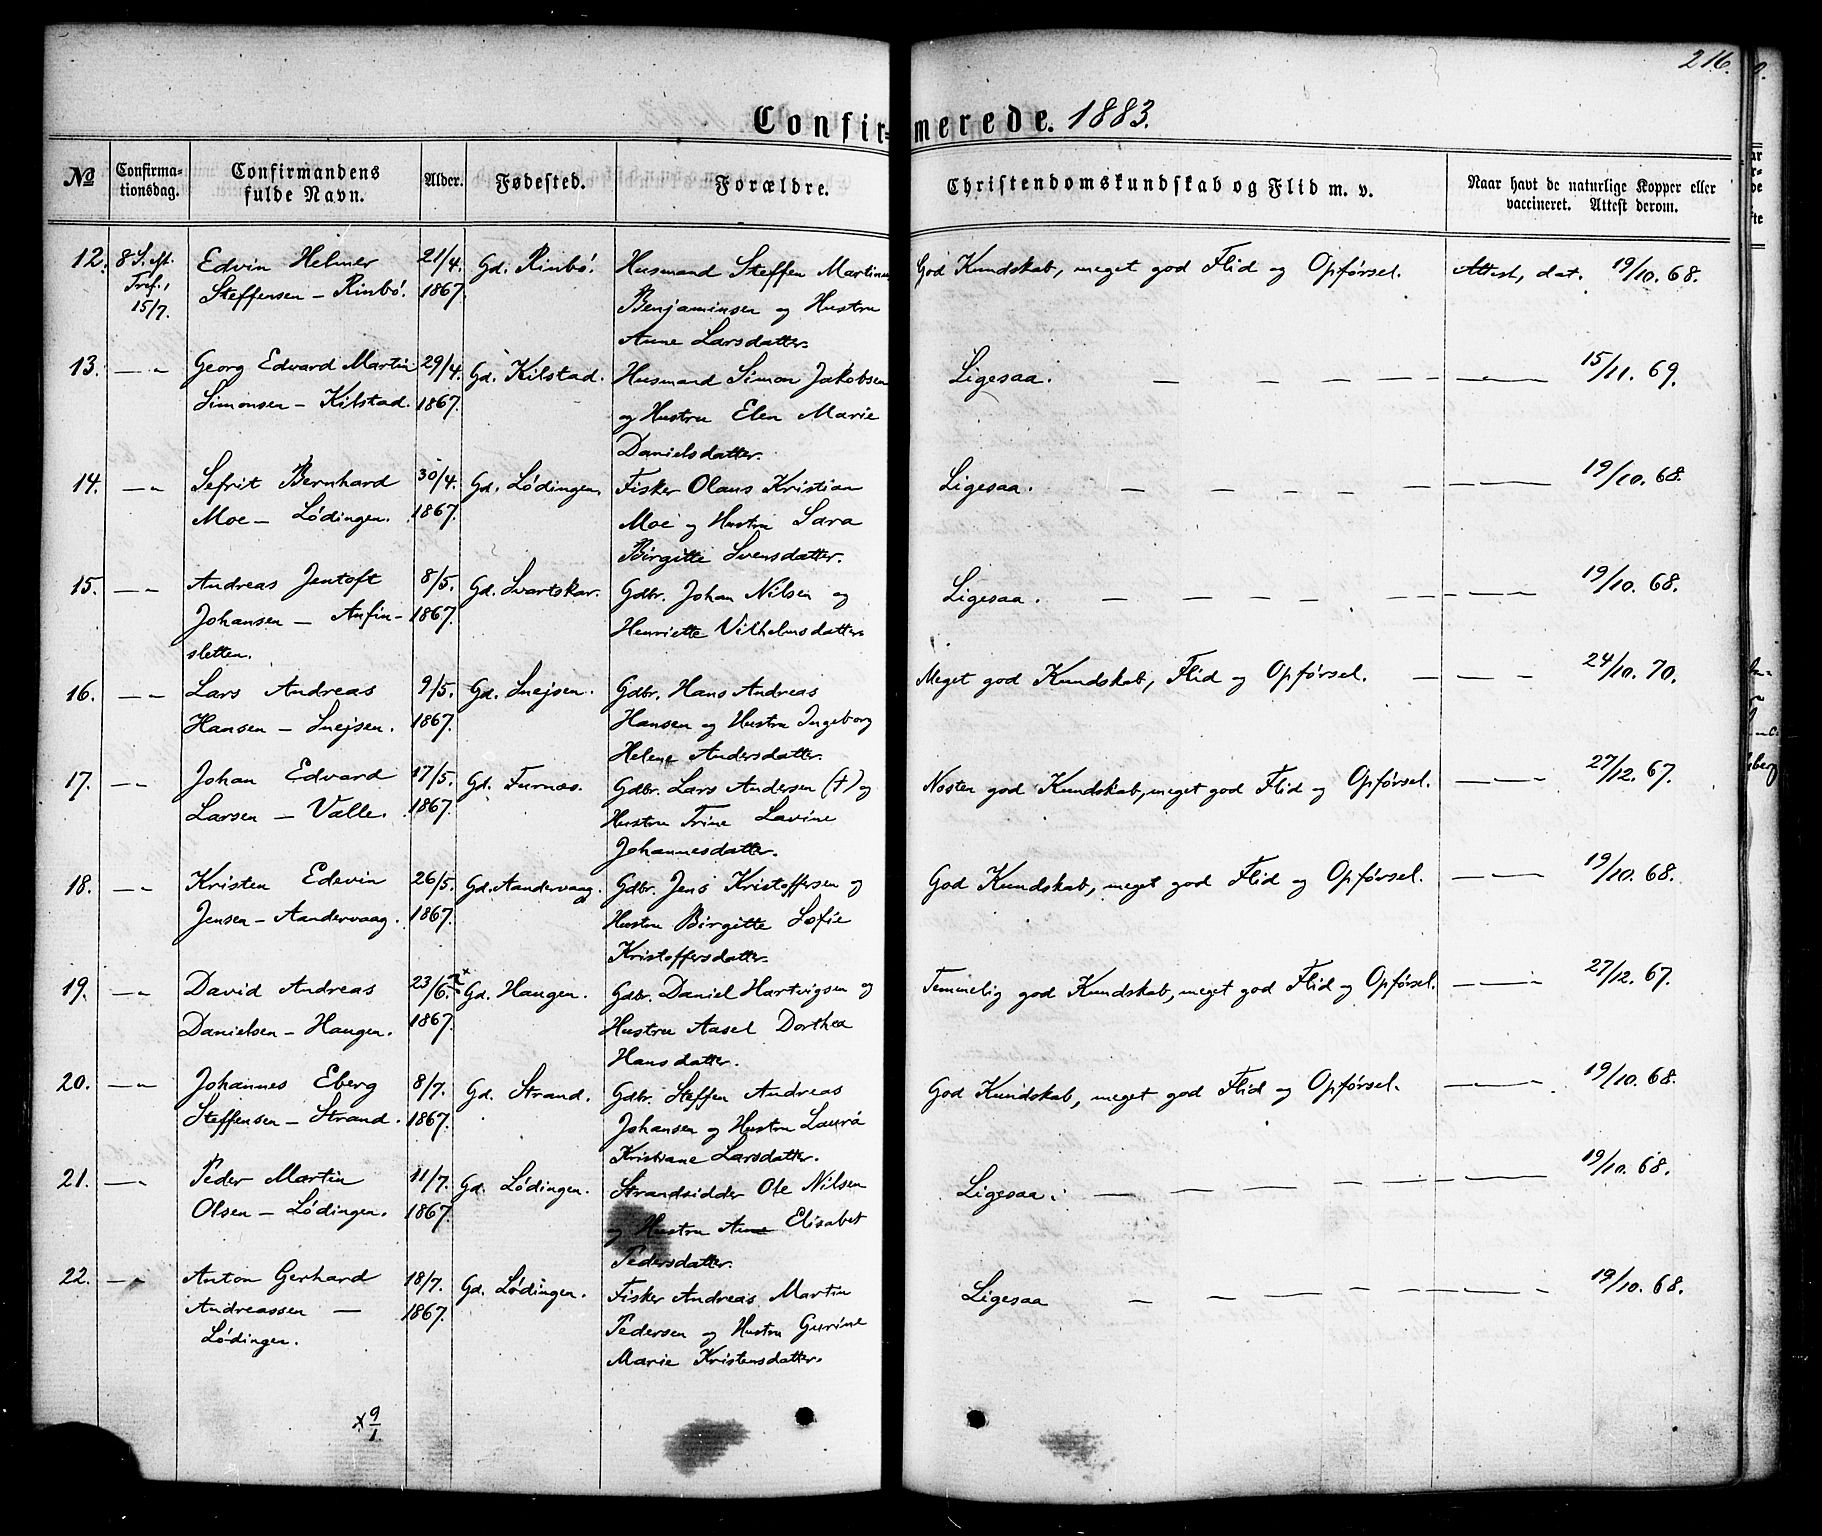 216.
Confirmerede. 1883.
No
Confirmationsdag.
Confirmandens fulde Navn.
Alder.
Fødested.
Forældre.
Christendomskundskab og Flid m. v.
Naar havt de naturlige Kopper eller vaccineret. Attest derom.
12. 8 S. eft. Edvin Helmer 21/4. Gd. Rinbö. Husmand Steffen Martinus God Kundskab, meget god Flid og Opförsel. Attest, dat. 19/10. 68.
Tref., Steffensen – Rinbö. 1867. Benjaminsen og Hustru
15/7. Anne Larsdatter.
13. — „ Georg Edvard Martin 29/4. Gd. Kilstad. Husmand Simon Jakobsen Ligesaa. — — — — — — „ — 15/11. 69.
Simonsen – Kilstad. 1867. og Hustru Elen Marie
Danielsdatter.
14. — „ Sefrit Bernhard 30/4. Gd. Lödingen. Fisker Olaus Kristian Ligesaa. — — — — — — „ — 19/10. 68.
Moe – Lödingen. 1867. Moe og Hustru Sara
Birgitte Svensdatter.
15. — „ Andreas Jentoft 8/5. Gd. Svartskar. Gdbr. Johan Nilsen og Ligesaa. — — — — — — „ — 19/10. 68.
Johansen – Anfin- 1867. Henriette Vilhelmsdatter.
sletten.
16. — „ Lars Andreas 9/5. Gd. Snejsen. Gdbr. Hans Andreas Meget god Kundskab, Flid og Opförsel. — — — 24/10. 70.
Hansen – Snejsen. 1867. Hansen og Hustru Ingeborg
Helene Andersdatter.
17. — „ Johan Edvard 17/5. Gd. Furnæs. Gdbr. Lars Andersen (†) og Næsten god Kundskab, meget god Flid og Opförsel. — „ — 27/12. 67.
Larsen – Valle. 1867. Hustru Trine Lavine
Johannesdatter.
18. — „ Kristen Edevin 26/5. Gd. Aandervaag. Gdbr. Jens Kristoffersen og God Kundskab, meget god Flid og Opförsel. — „ — 19/10. 68.
Jensen – Aandervaag. 1867. Hustru Birgitte Sofie
Kristoffersdatter.
19. — „ David Andreas 23/6. Gd. Haugen. Gdbr. Daniel Hartvigsen og Temmelig god Kundskab, meget god Flid og Opförsel. — „ — 27/12. 67.
Danielsen – Haugen. 1867. Hustru Aasel Dorthea
Hansdatter.
20. — „ Johannes Eberg 8/7. Gd. Strand. Gdbr. Steffen Andreas God Kundskab, meget god Flid og Opförsel. — „ — 19/10. 68.
Steffensen – Strand. 1867. Johansen og Hustru Laura
Kristiane Larsdatter.
21. — „ Peder Martin 11/7. Gd. Lödingen. Strandsidder Ole Nilsen Ligesaa. — — — — — — „ — 19/10. 68.
Olsen – Lödingen. 1867. og Hustru Anne Elisabet
Pedersdatter.
22. — „ Anton Gerhard 18/7. Gd. Lödingen. Fisker Andreas Martin Ligesaa — — — — — — „ — 19/10. 68.
Andreassen – 1867. Pedersen og Hustru Gurine
Lödingen. Marie Kristensdatter.
x 9/1